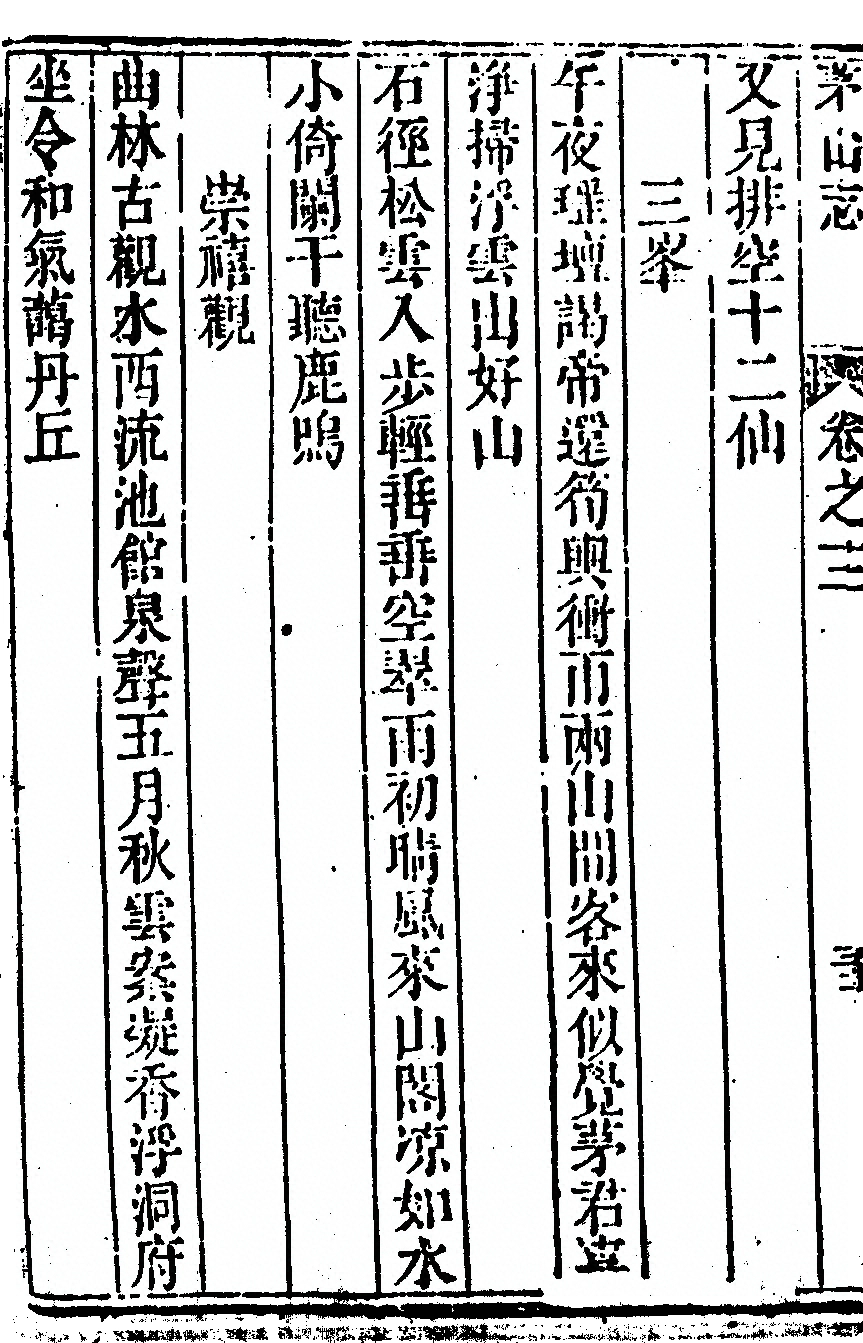 茅山志 卷之十三
又見排空十二仙
三峯
午夜瑤壇謁帝還筍輿衝雨兩山間客來似覺茅君喜
淨掃浮雲出好山
石徑松雲入步輕垂垂空翠雨初晴風來山閣凉如水
小倚闌干聽鹿鳴
崇禧觀
曲林古觀水西流池館泉聲五月秋雲氣凝香浮洞府
坐令和氣藹丹丘